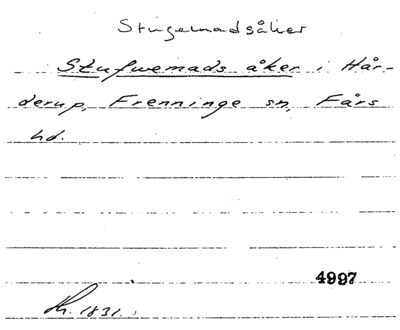 Stugemadsåker
Stufwemads åker i Hår-
derup, Frenninge sn, Färs
hd.
4997
1831.